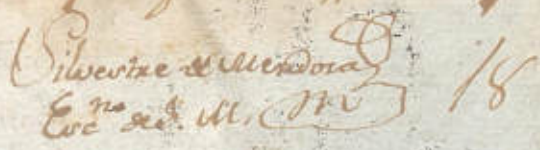 Silvestre de Mendoza 18
Esc.no de S. M.